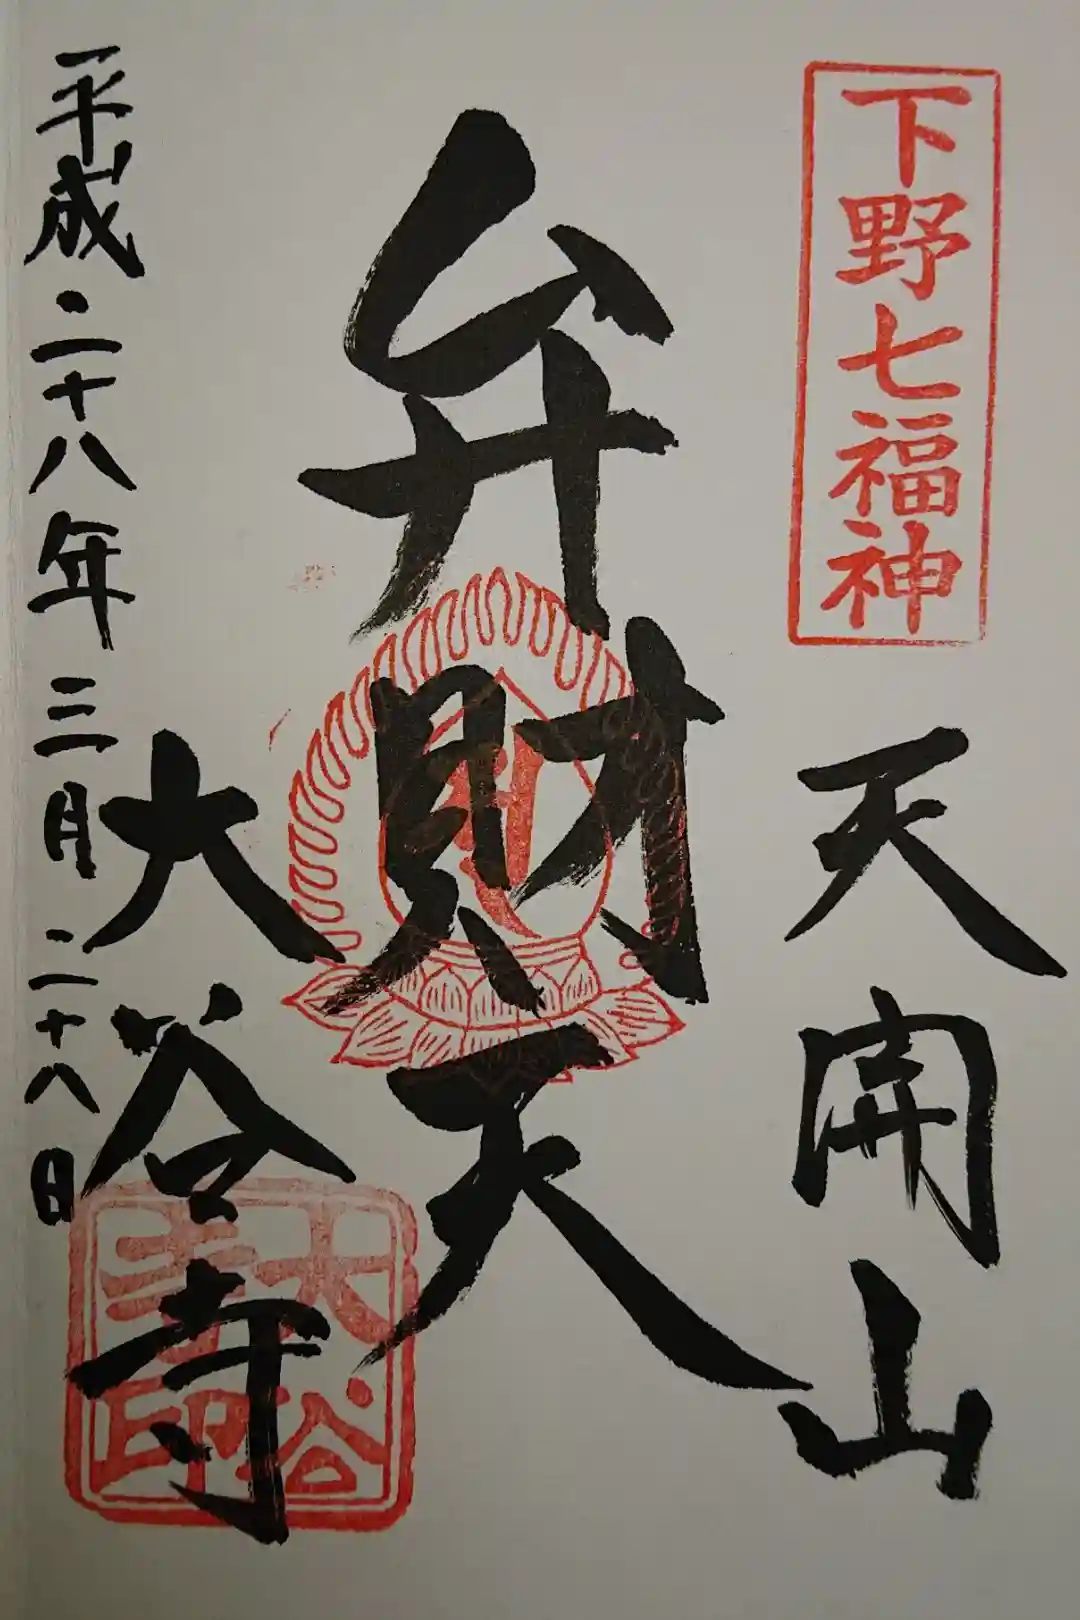 下野七福神
天開山
弁財天
大谷寺
平成二十八年三月二十八日
大谷寺印